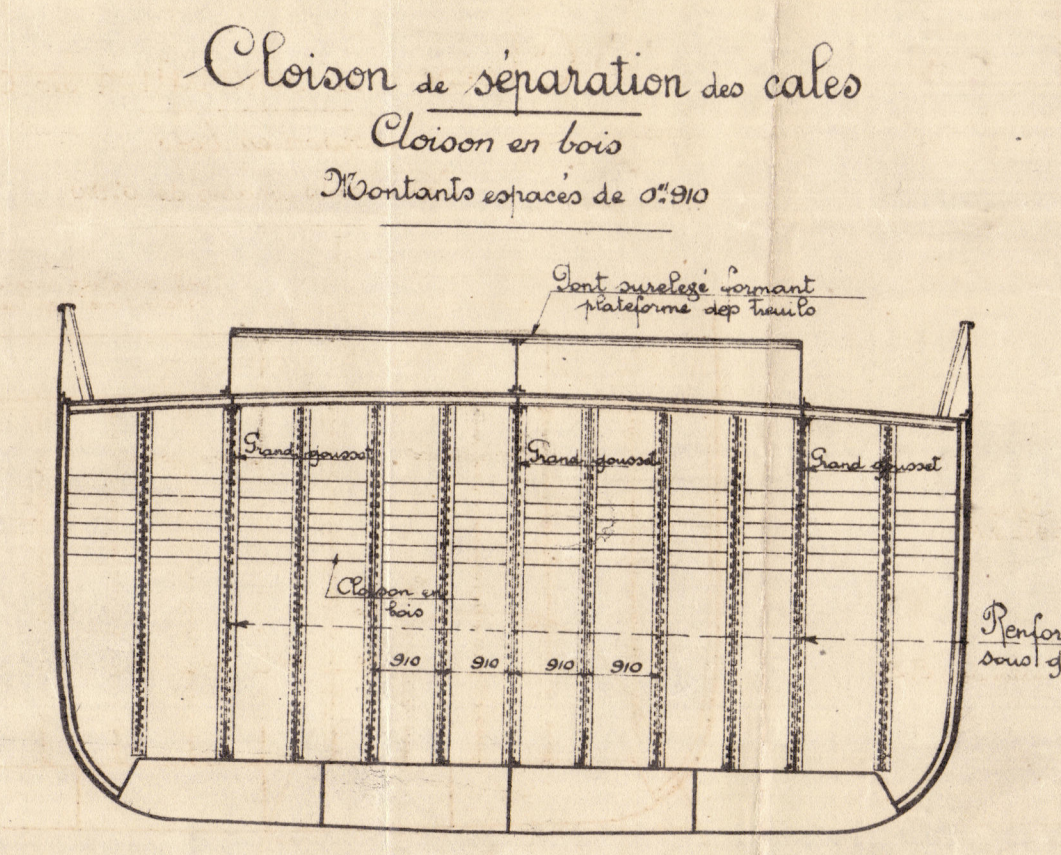 Cloison de séparation des cales
Cloison en bois
Montants espacés de 0m910
Pont surelevé formant
plateforme des treuils
Grand gousset
Grand gousset
Grand gousset
Cloison en
bois
Renfor
sous g
910 910 910 910